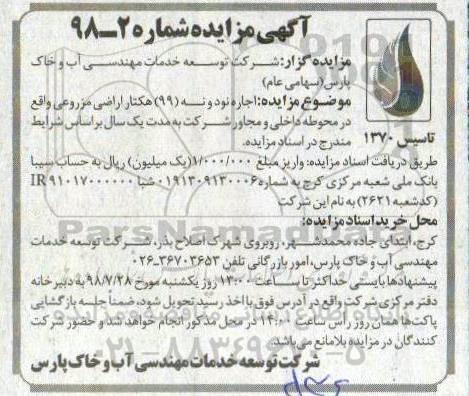 آگهی مزایده شماره ۲ـ۹۸
مزایده گزار: شرکت توسعه خدمات مهندسی آب و خاک
پارس(سهامی عام)
موضوع مزایده: اجاره نود و نه (۹۹) هکتار اراضی مزروعی واقع
در محوطه داخلی و مجاور شرکت به مدت یک سال براساس شرایط
مندرج در اسناد مزایده.
تاسیس ۱۳۷۰
طریق دریافت اسناد مزایده: واریز مبلغ ۱/۰۰۰/۰۰۰(یک میلیون) ریال به حساب سیبا
بانک ملی شعبه مرکزی کرج به شماره ۰۱۹۱۳۰۹۱۳۰۰۰۶ شبا IR ۹۱۰۱۷۰۰۰۰۰۰
(کدشعبه ۲۶۲۱) به نام این شرکت
محل خرید اسناد مزایده:
کرج، ابتدای جاده محمدشهر، روبروی شهرک اصلاح بذر، شرکت توسعه خدمات
مهندسی آب و خاک پارس، امور بازرگانی تلفن ۳۶۷۰۳۶۵۳-۰۲۶
پیشنهادها بایستی حداکثر تا ساعت ۱۳:۰۰ روز یکشنبه مورخ ۹۸/۷/۲۸ به دبیرخانه
دفتر مرکزی شرکت واقع در آدرس فوق با اخذ رسید تحویل شود، ضمناً جلسه بازگشایی
پاکت‌ها همان روز راس ساعت ۱۴:۰۰ در محل مذکور انجام خواهد شد و حضور شرکت
کنندگان در مزایده بلامانع می‌باشد.
شرکت توسعه خدمات مهندسی آب و خاک پارس
ParsNamadData
۰۲۱-۸۸۳۴۹۶۷۰-۵